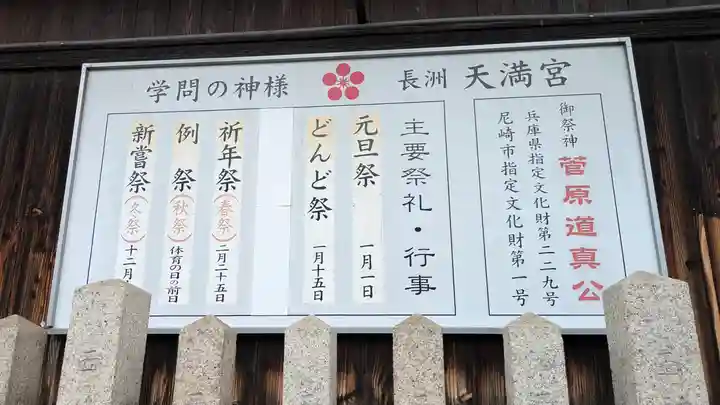 学問の神様 長洲 天満宮
御祭神 菅原道真公
兵庫県指定文化財第二二九号
尼崎市指定文化財第一号
主要祭礼・行事
元旦祭 一月一日
どんど祭 一月十五日
祈年祭(春祭) 二月二十五日
例祭(秋祭) 体育の日の前日
新嘗祭(冬祭) 十二月